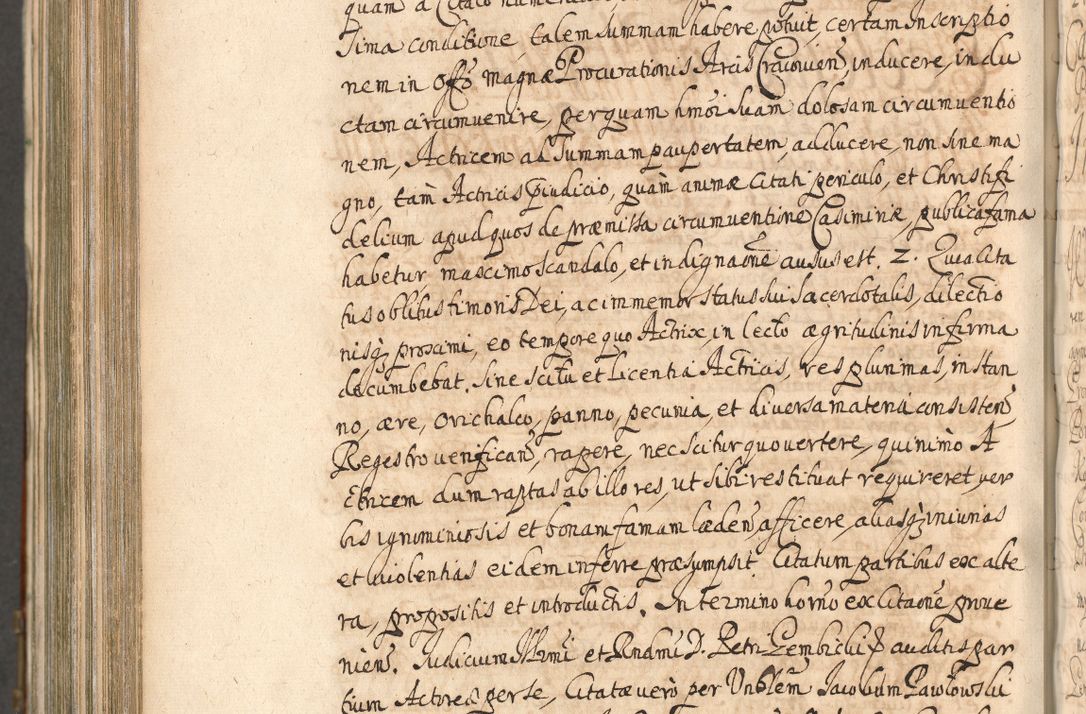 quam a Citato
sima conditione, talem summam habere potuit, certam inscriptio
nem in Offo magnæ Procurationis Arcis Cracovien, inducere, indu
ctam circumvenire, per quam hmoi suam dolosam circumventio
nem, Actricem ad summam paupertatem, adducere, non sine ma
gno, tam Actricis pjudicio, quam animæ Citati periculo, et Christifi
delium apud quos de præmissa circumventione Casimiriæ, publica fama
habetur, maximo scandalo, et indignaone ausus est. 2. Quia Cita
tus oblitus timoris Dei, ac immemor status sui sacerdotalis, dilectio
nisq; proximi, eo tempore quo Actrix, in lecto ægritudinis infirma
decumbebat. Sine scitu et licentia Actricis, res plurimas, in stan
no, ære, orichalco, panno, pecunia, et diversa materia consisten
Regestro verifican, rapere, nec scitur quo vertere, quinimo A
ctricem dum raptas ab illo res, ut sibi restituat requireret, ver
bis ignominiosis et bonam famam læden, afficere, aliasq; iniurias
et violentias eidem inferre præsumpsit Citatum partibus ex alte
ra, propositis et introductis. In termino horno ex Citaone prove
nien. Judicium Illrmi et Rndmi D. Petri Gembicki P auditis par
tium Actorea per se, Citatæ vero per Unblem Jacobum Pawlowski